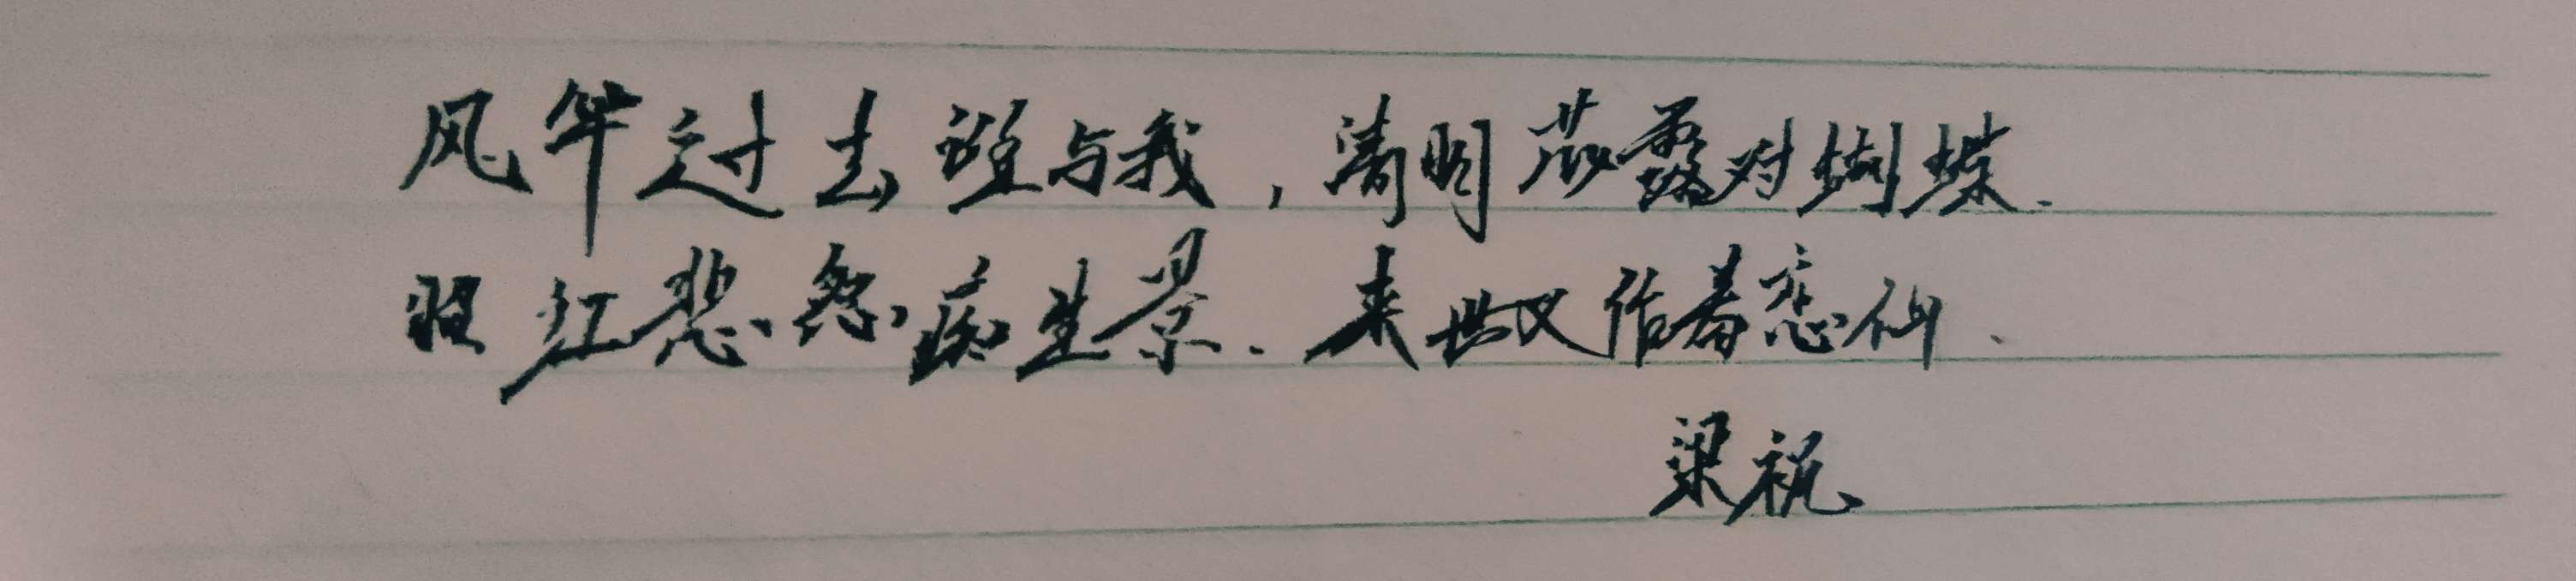 风华过去谁与我，清明花露对蝴蝶.
红悲怨痴生景.来世又作着恋仙.
梁祝